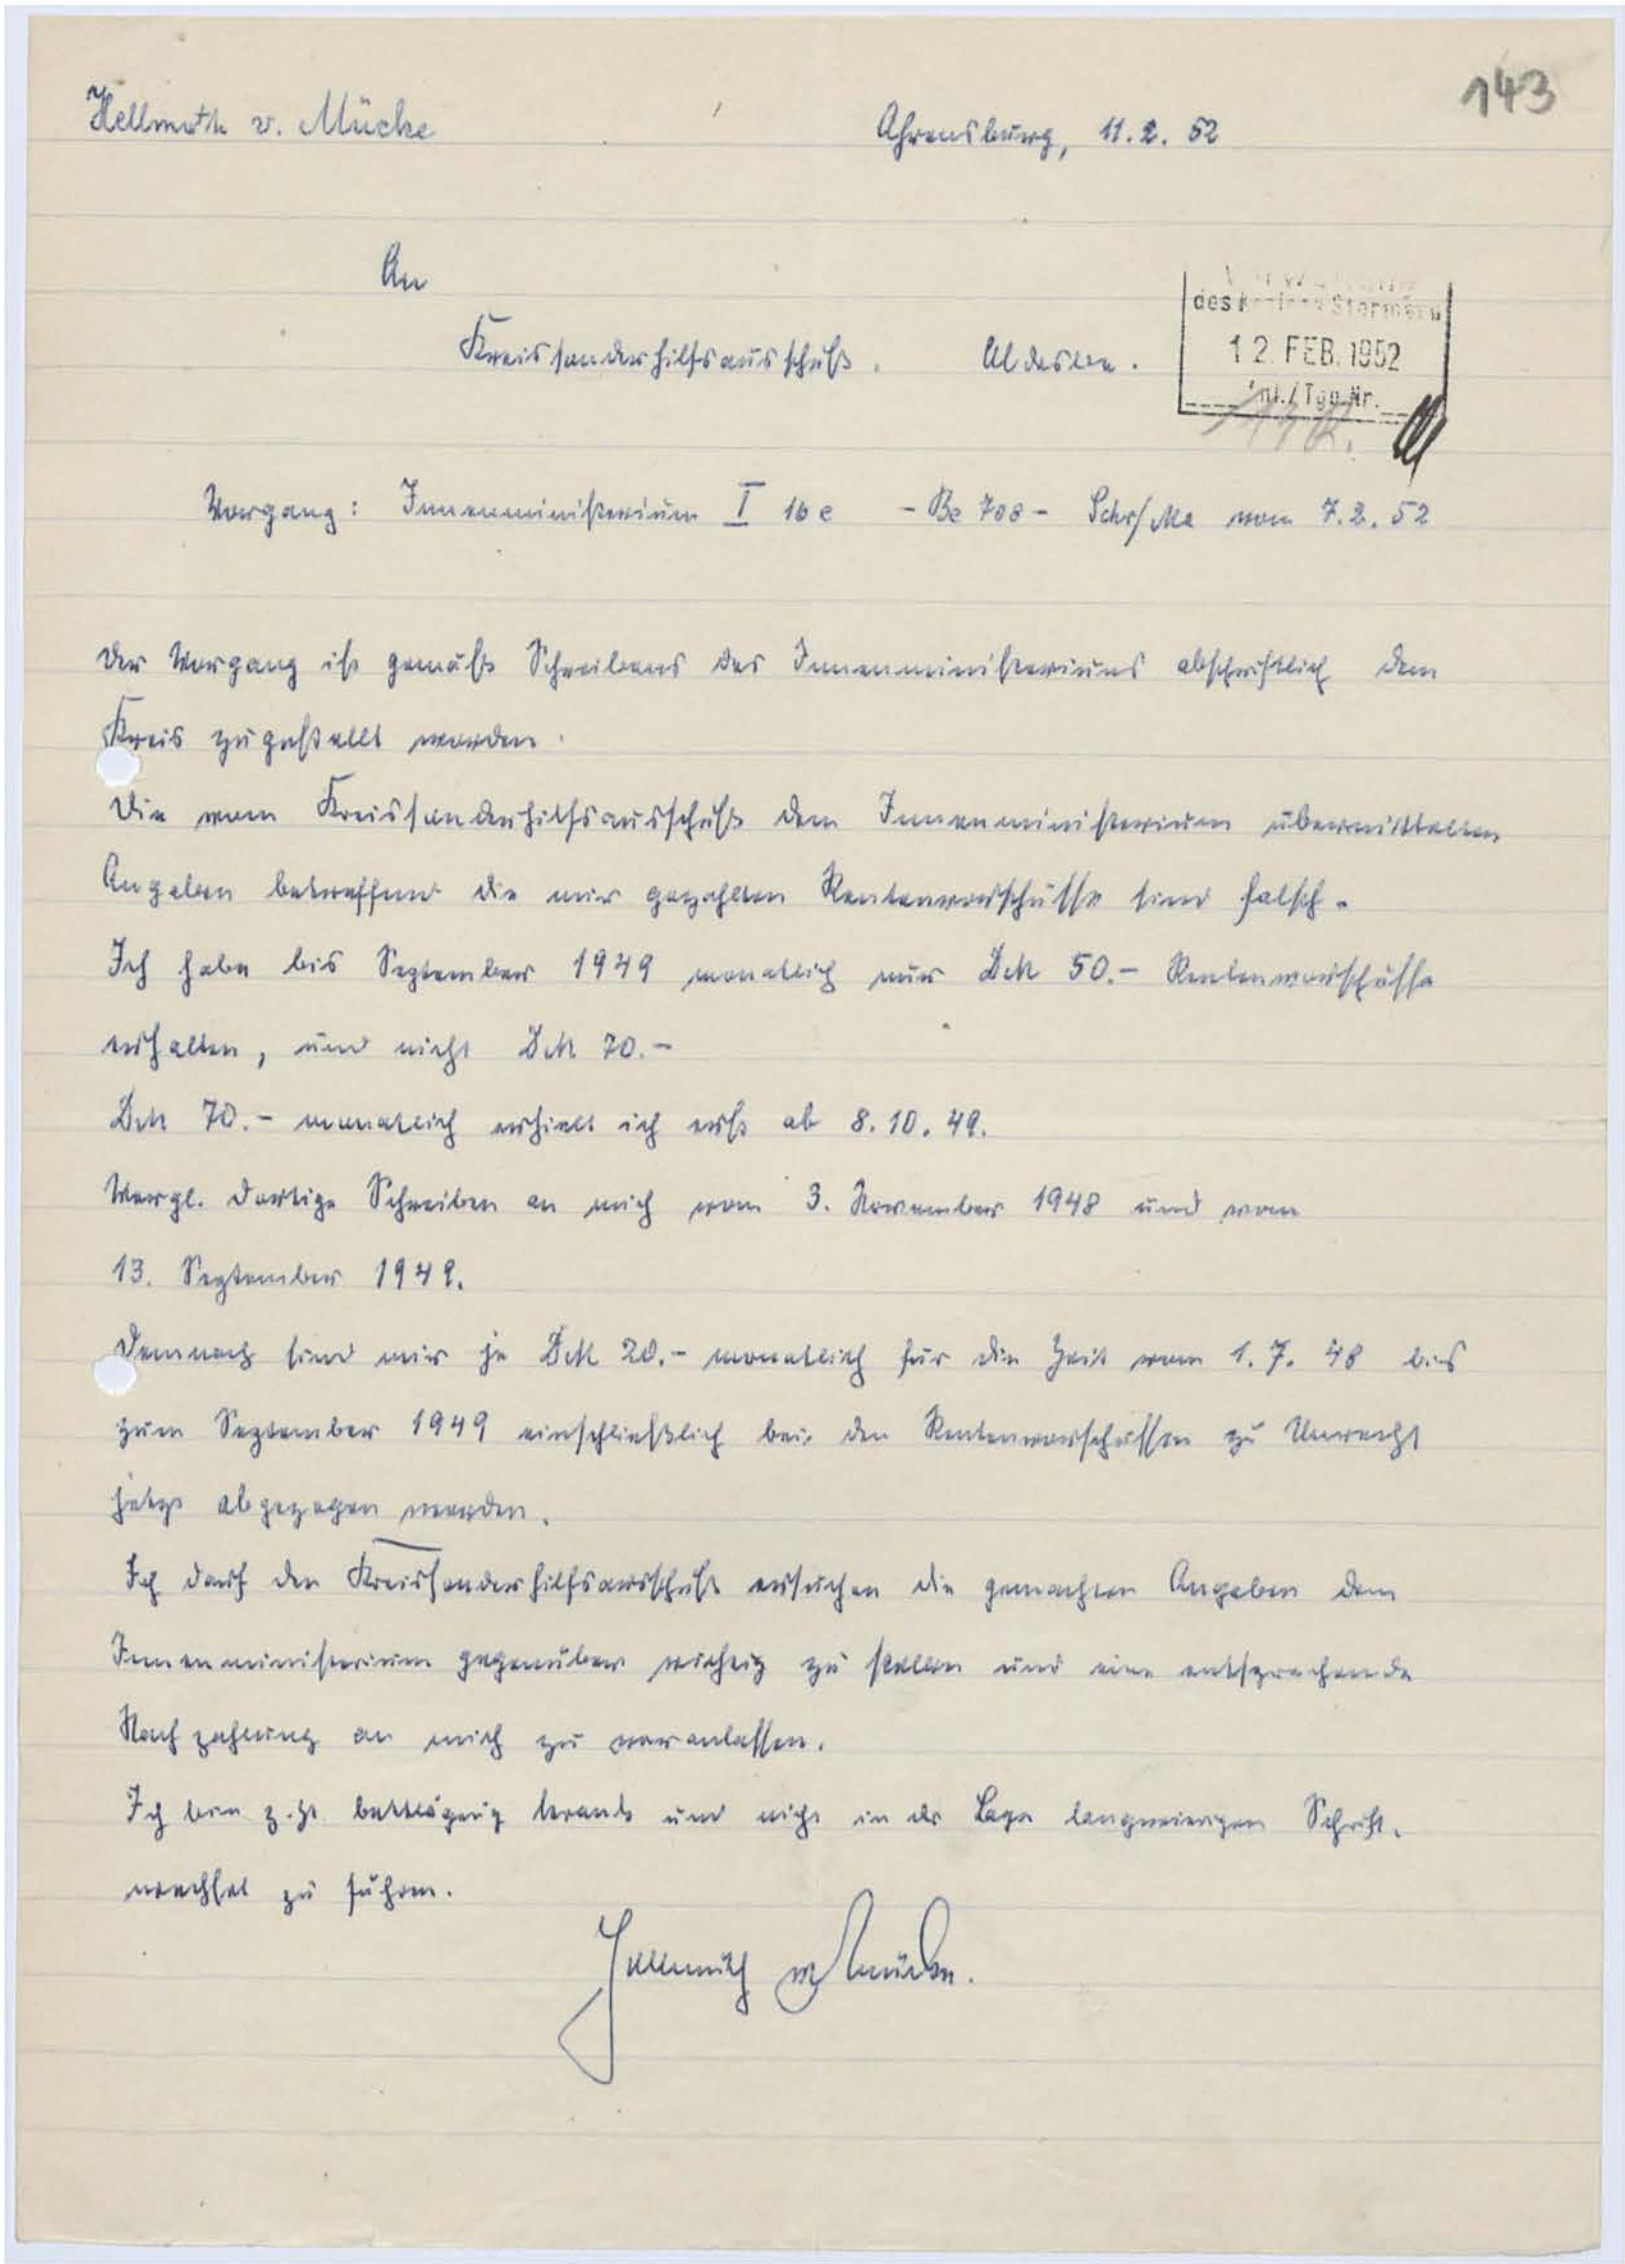 143
Hellmuth v. Mücke
Ahrensburg, 11. 2. 52
An
Kreissonderhilfsausschuß. Oldesloe.
des Kreises Stormarn
12. FEB. 1952
Tgb. Nr.
Vorgang: Innenministerium I 16 e - Be 708 - Schr/Ma vom 7. 2. 52
Der Vorgang ist gemäß Schreibens des Innenministeriums abschriftlich dem
Kreis zugestellt worden.
Die vom Kreissonderhilfsausschuß dem Innenministerium übermittelten
Angaben betreffend die mir gezahlten Rentenvorschüsse sind falsch.
Ich habe bis September 1949 monatlich nur DM 50.- Rentenvorschüsse
erhalten, und nicht DM 70.-
DM 70.- monatlich erhielt ich erst ab 8. 10. 49.
Vergl. dortige Schreiben an mich vom 3. November 1948 und vom
13. September 1949.
Demnach sind mir je DM 20.- monatlich für die Zeit vom 1. 7. 48 bis
zum September 1949 einschließlich bei den Rentenvorschüssen zu Unrecht
jetzt abgezogen worden.
Ich darf den Kreissonderhilfsausschuß ersuchen die gemachten Angaben dem
Innenministerium gegenüber richtig zu stellen und eine entsprechende
Nachzahlung an mich zu veranlassen.
Ich bin z. Zt. bettlägrig krank und nicht in der Lage langwierigen Schrift-
wechsel zu führen.
Hellmuth v Mücke.